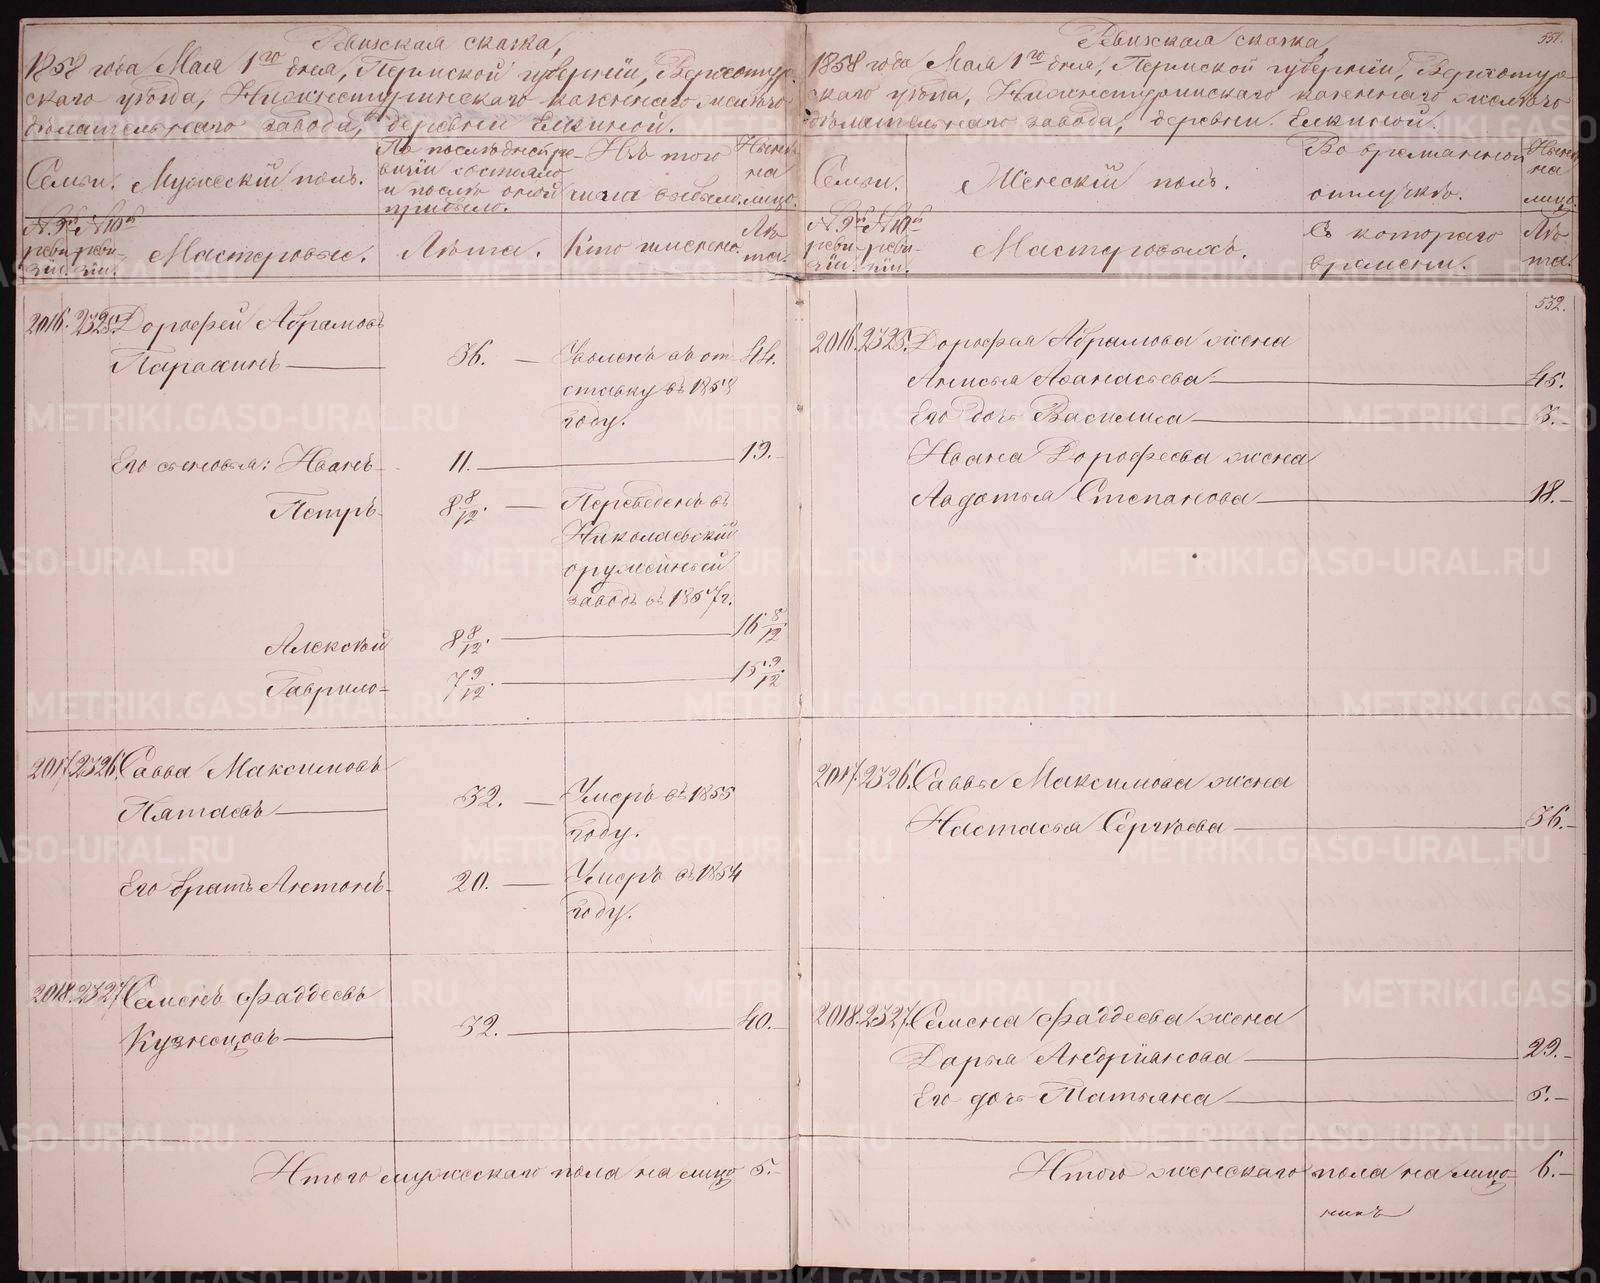 Ревизская сказка,
1858 года Мая 1го дня, Пермской губернiи, Верхотур-
скаго уѣзда, Нижнетуринскаго казеннаго желѣзо-
дѣлательнаго завода, деревни Елкиной.
Семьи. Мужескiй полъ. По послѣдней ре-
визiи состояло
и послѣ оной
прибыло. Изъ того
числа выбыло. Нынѣ
на
лицо.
№ 9й
реви-
зiи. № 10й
реви-
зiи. Мастеровые. Лѣта. Кто именно. Лѣ-
та.
2016. 2325. Дорофей Абрамовъ
Парахинъ 36. Уволенъ въ от 44.
ставку въ 1858
году.
Его сыновья: Иванъ 11. 19.
Петръ 8 8/12. Переведенъ въ
Николаевскiй
оружейный
заводъ въ 1857 г.
Алексѣй 8 8/12. 16 8/12
Гаврило 7 9/12. 15 9/12.
2017. 2326. Савва Максимовъ
Пятаевъ 32. Умеръ въ 1855
году.
Его братъ Антонъ 20. Умеръ въ 1854
году.
2018. 2327. Семенъ Фаддеевъ
Кузнецовъ 32. 40.
Итого мужескаго пола на лицо 5.
551.
Ревизская сказка,
1858 года Мая 1го дня, Пермской губернiи, Верхотур-
скаго уѣзда, Нижнетуринскаго казеннаго желѣзо-
дѣлательнаго завода, деревни Елкиной.
Семьи. Женскiй полъ. Во временной
отлучкѣ. Нынѣ
на
лицо.
№ 9й
реви-
зiи. № 10й
реви-
зiи. Мастеровыхъ. Съ котораго
времени. Лѣ-
та.
532.
2016. 2325. Дорофея Абрамова жена
Анисья Афанасьева 45.
Его дочь Василиса 3.
Ивана Дорофеева жена
Авдотья Степанова 18.
2017. 2326. Саввы Максимова жена
Настасья Сергѣева 36.
2018. 2327. Семена Фаддеева жена
Дарья Андрiянова 29.
Его дочь Татьяна 5.
Итого женскаго пола на лицо 6.
METRIKI.GASO-URAL.RU